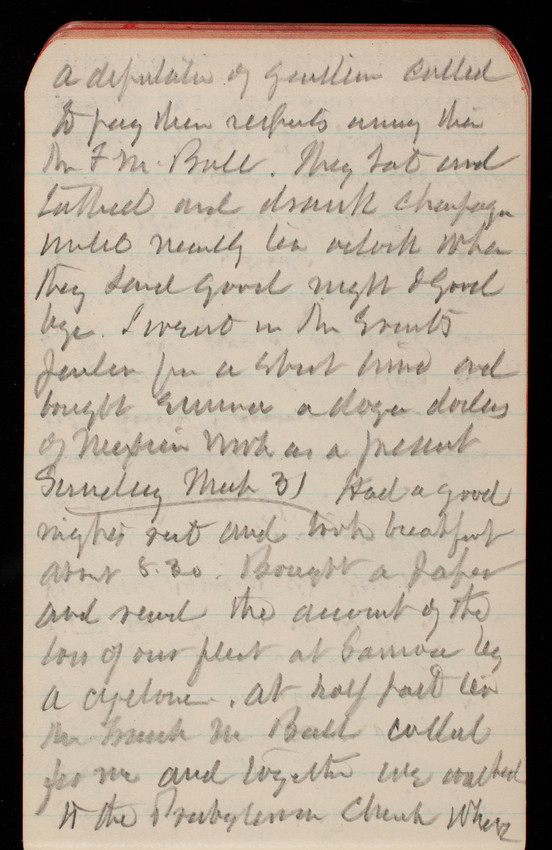 a deputation of gentlemen called
to pay their respects among them
Mr F M. Ball. They sat and
talked and drank champagne
until nearly ten oclock when
they said good night & good
bye. I went in the
for a short time and
bought Emma a dozen doilies
of Mexican work as a present.
Sunday March 31 Had a good
nights rest and took breakfast
about 8.30. Bought a paper
and read the account of the
loss of our fleet at Samoa by
a cyclone. at half past ten
Mr Ball called
for me and together we walked
to the Presbyterian Church where